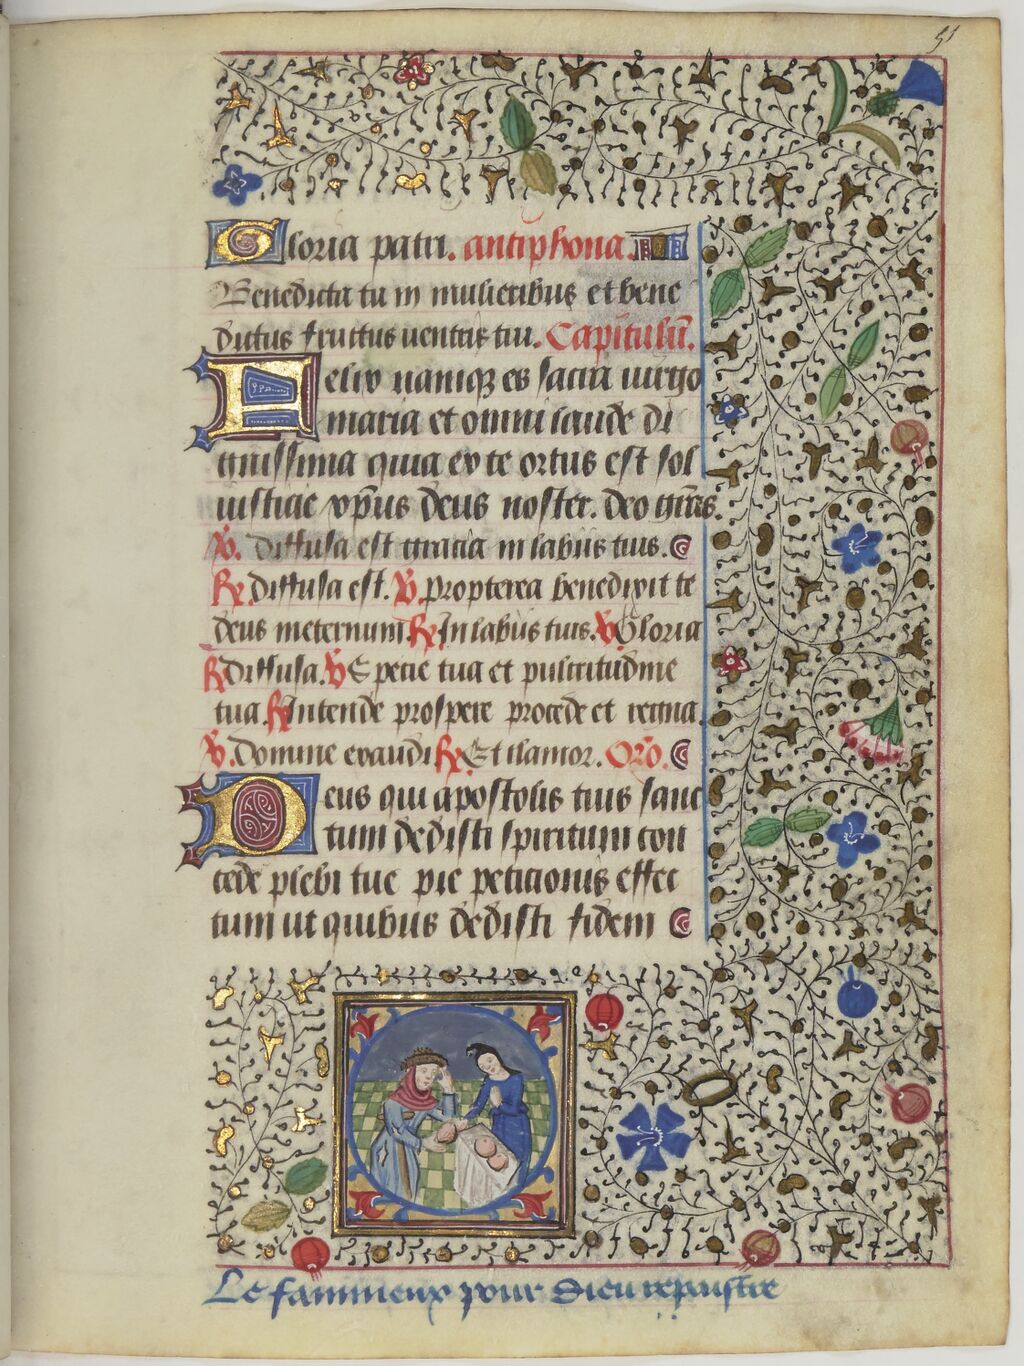 51
Gloria patri. antiphona.
Benedicta tu in mulieribus et bene
dictus fructus ventris tui. Capitulũ.
Felix namq; es sacra uirgo
maria et omni laude di
gnissima quia ex te ortus est sol
iusticie xp̃us deus noster. deo grãs.
V. Diffusa est gracia in labiis tuis.
R. Diffusa est. V. propterea benedixit te
deus meternum R. In labiis tuis. V. Gloria
R. Diffusa. V. Specie tua et pulcritudine
tua. R. Intende prospere procede et regna.
V. Domine exaudi R. Et clamor. Orõ.
Deus qui apostolis tuis sanc
tum dedisti spiritum con
cede plebi tue pie peticionis effec
tum ut quibus dedisti fidem
Le fammeux pour dieu repaistre